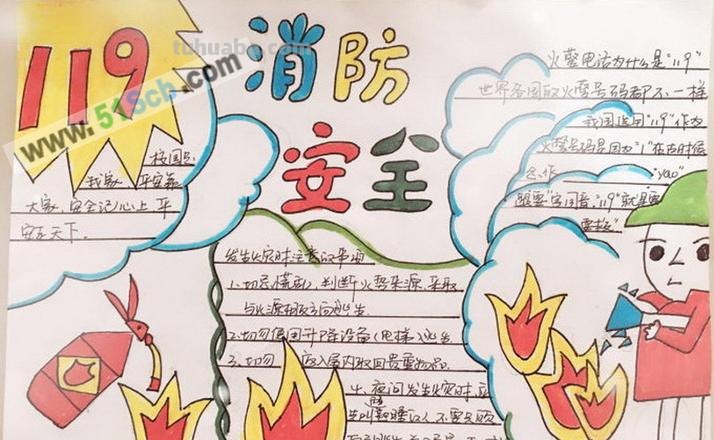 119
消防
安全
tuhuabu.com
www.51Scb.com
校园是
我家,平安靠
大家,安全记心上平
安在天下.
火警电话为什么是"119"
世界各国的火警号码都不一样
我国选用"119"作为
火警号码是因为"1"在古时候
念作"yao"
跟"要"字同音."119"就是要
要救"
发生火灾时注意的事项
1.切忌慌乱,判断火势来源,采取
与火源相反方向逃生
2.切勿使用升降设备(电梯)逃生
3.切勿 返入屋内取回贵重物品.
4.夜间发生火灾时,应